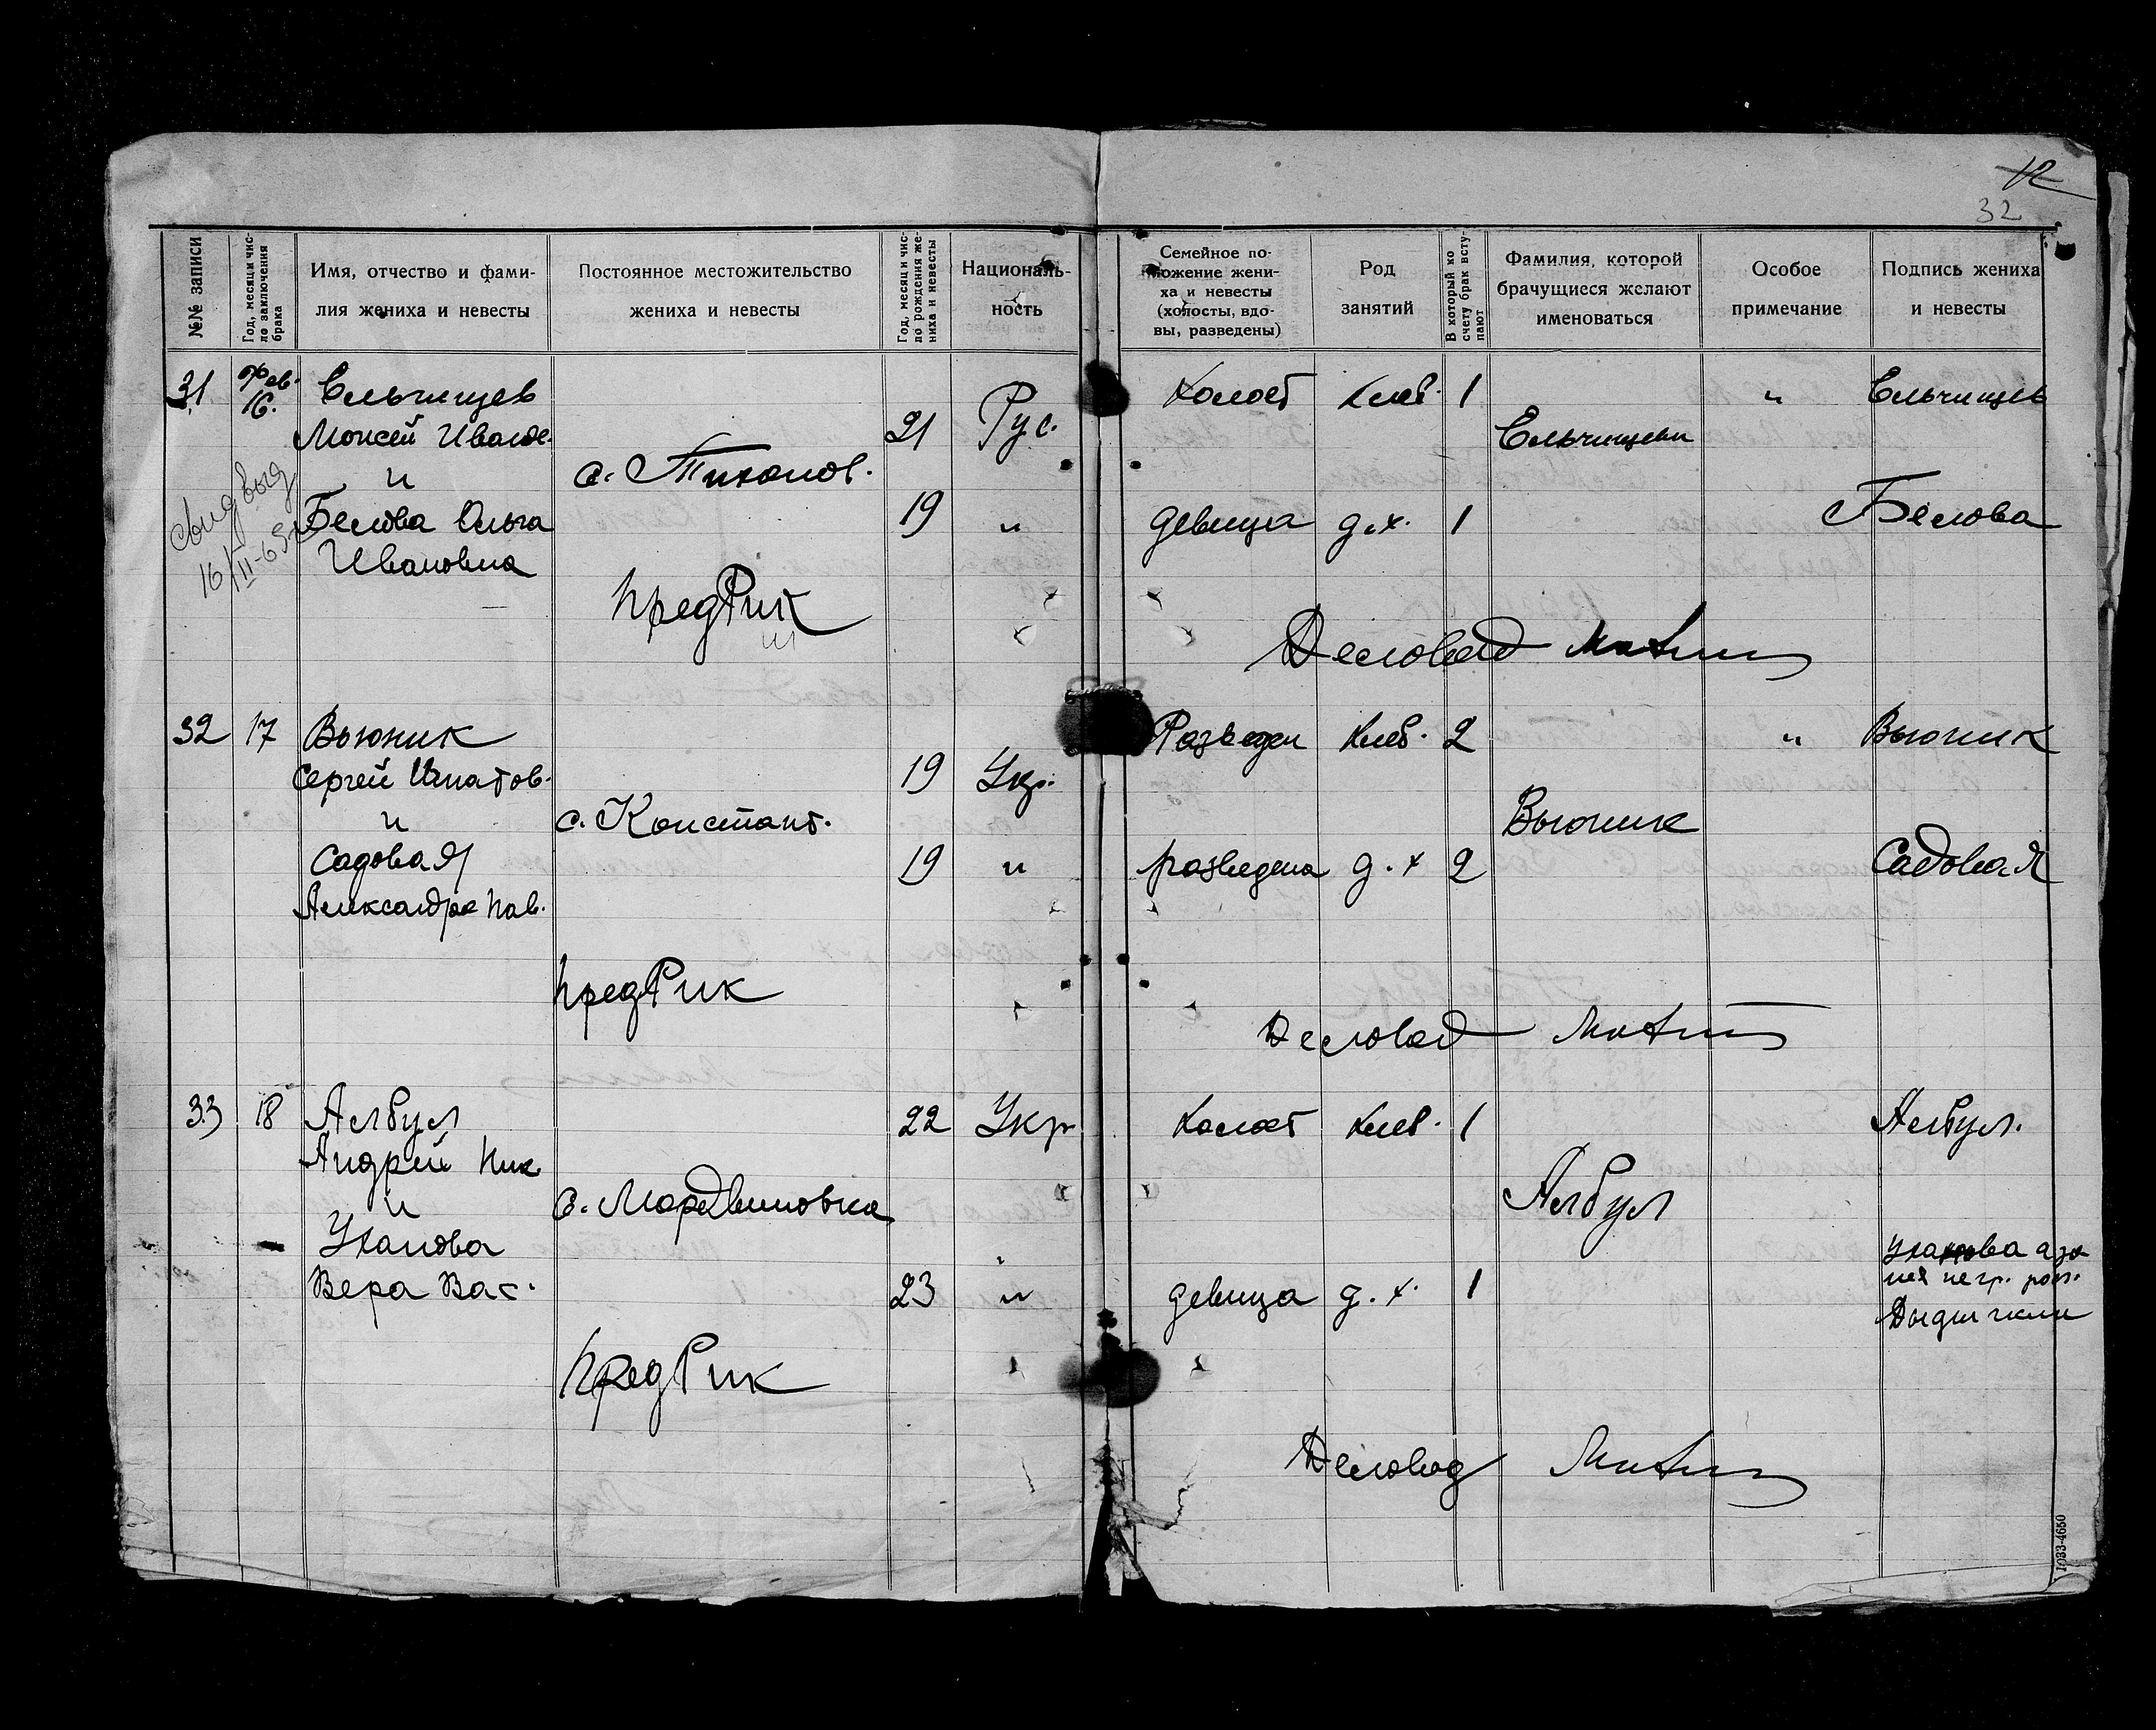 12
32
№№ записи
Год, месяц и чис-
ло заключения
брака
Имя, отчество и фами-
лия жениха и невесты
Постоянное местожительство
жениха и невесты
Год, месяц и чис-
ло рождения же-
ниха и невесты
Националь-
ность
Семейное по-
ложение жени-
ха и невесты
(холосты, вдо-
вы, разведены)
Род
занятий
В который по
счету брак всту-
пают
Фамилия, которой
брачущиеся желают
именоваться
Особое
примечание
Подпись жениха
и невесты
31 фев. 16. Ельчищев
Моисей
и
Белова Ольга
Ивановна
с. Тиханов.
21 Рус.
19 "
Холост Хлеб. 1
девица д.х. 1
Ельчищевы
"
Ельчищев
Белова
свид выд
16/II-65
ПредРик
Деловод
32 17 Вьюник
Сергей Игнатов.
и
Садовая
Александра Пав.
с. Констант.
19 Укр.
19 "
Разведен Хлеб. 2
разведена д.х 2
Вьюник
"
Вьюник
Садовая
ПредРик
Деловод
33 18 Албул
Андрей Ник
и
Уханова
Вера Вас.
с. Мордвиновка
22 Укр
23 "
Холост Хлеб. 1
девица д.х. 1
Албул
Албул.
Уханова а за
нея негр. рос.
ПредРик
Деловод
1033-4650